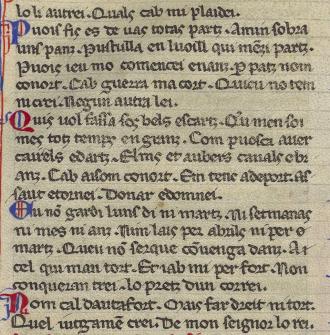 lo li autrei. Quals cab mi plaidei.
Puois fis es de uas totas partz. Amun sobra
uns panz. Pustuilla en luoill qui men partz.
Puois ieu mo comencei enanz. E patz nom
conort. Cab guerra macort. Quieu no tem
ni crei. Negun autra lei.
Quis uol fassa sos bels escartz. Qu men soi
mes totz temps en granz. Com puosca auer
cairels e dartz. Elms et aubercs cauals e br
anz. Cab aisom conort. Ein tenc adeport. As
saut e tornei. Donar e domnei.
Eu no gardi luns di ni martz. Ni setmanas
ni mes ni anz. Nim lais per abrils ni per
martz. Quieu no serque conuenga danz. A
cel qui man tort. Et iab mi per fort. Non
conqueran trei. lo pretz dun correi.
Nom cal dautafort. Mais far dreit ni tort.
Quel iutgamen crei. De mon seignor lo rei.